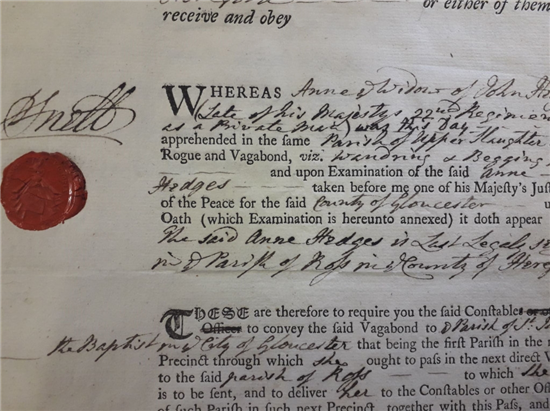 or either of them
receive and obey
WHEREAS Anne ye Widow of John He
(Late of his Majestys 22nd Regimen
as a Private Man) was this Day
apprehended in the same Parish of Upper Slaughter
Rogue and Vagabond, viz. Wandring & Begging
and upon Examination of the said Anne
Hedges taken before me one of his Majesty's Just
of the Peace for the said County of Gloucester u
Oath (which Examination is hereunto annexed) it doth appear
The said Anne Hedges is Last Legaly s
in ye Parish of Ross in ye County of Here
THESE are therefore to require you the said Constables
Officer to convey the said Vagabond to ye Parish of St. J
the Baptist in ye City of Gloucester that being the first Parish in the n
Precinct through which she ought to pass in the next direct
to the said parish of Ross to which she
is to be sent, and to deliver her to the Constables or other Of
of such Parish in such next Precinct, together with this Pass, and
Snell